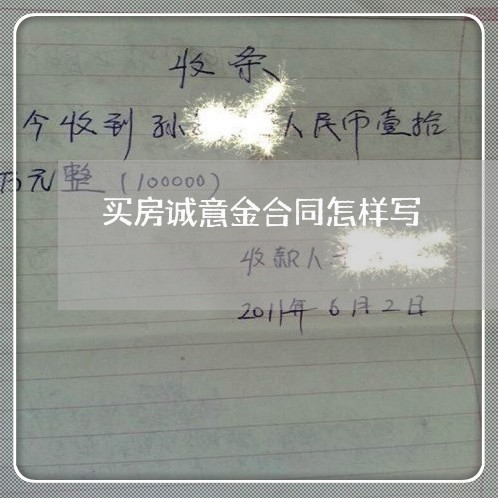 收条
今收到孙 人民币壹拾
万元整（100000）
买房诚意金合同怎样写
收款人
2011年6月2日